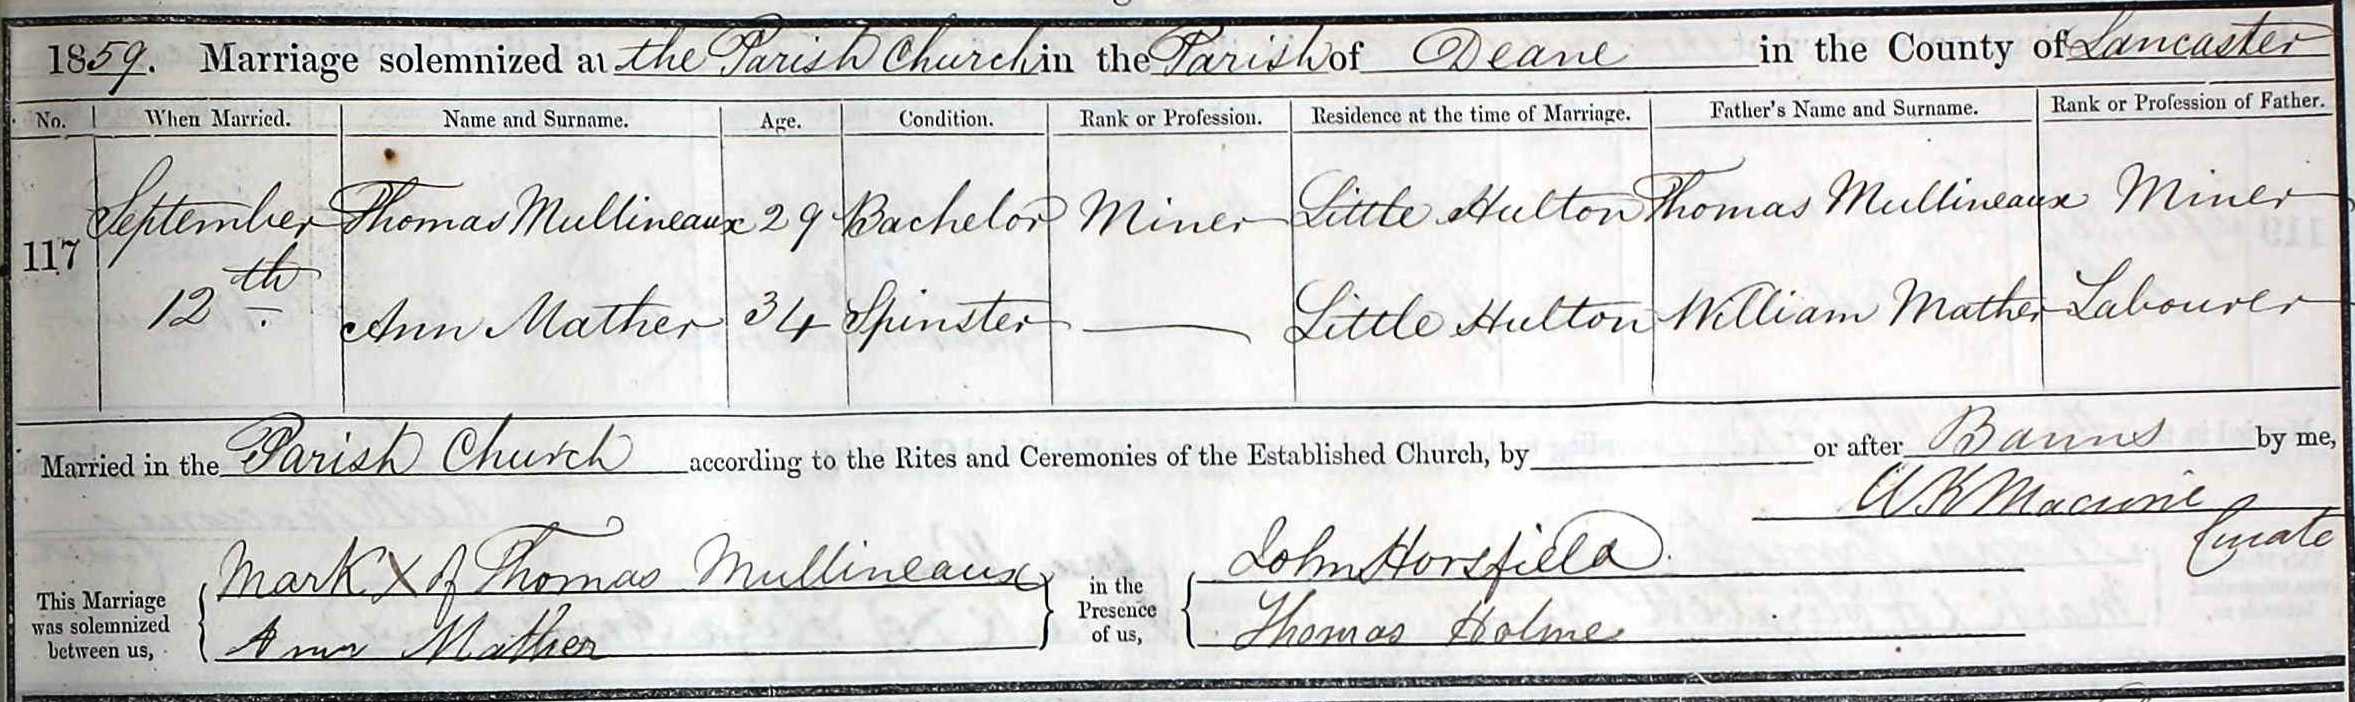 1859. Marriage solemnized at the Parish Church in the Parish of Deane in the County of Lancaster
No. When Married. Name and Surname. Age. Condition. Rank or Profession. Residence at the time of Marriage. Father's Name and Surname. Rank or Profession of Father.
117 September Thomas Mullineaux 29 Bachelor Miner Little Hulton Thomas Mullineaux Miner
12th. Ann Mather 34 Spinster Little Hulton William Mather Labourer
Married in the Parish Church according to the Rites and Ceremonies of the Established Church, by or after Banns by me,
W K Macrorie
Curate
This Marriage was solemnized between us,
Mark X of Thomas Mullineaux
Ann Mather
in the Presence of us,
John Horsfield.
Thomas Holme